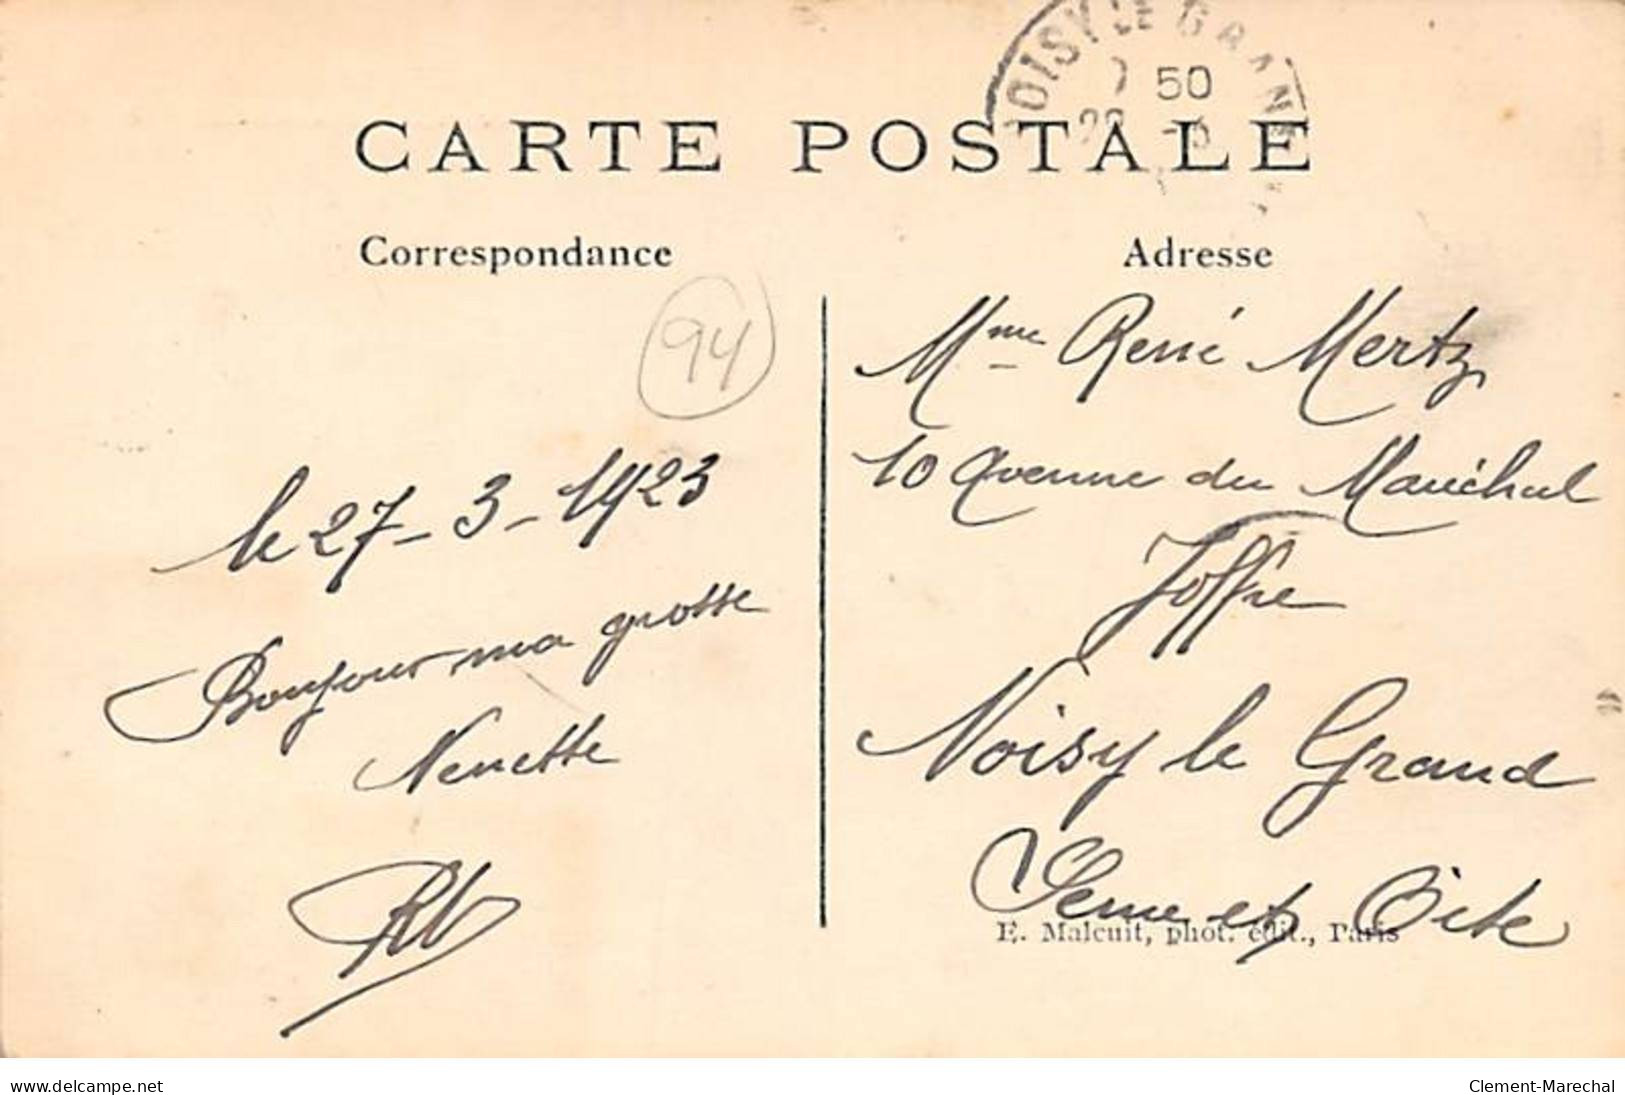 OISY LE GRAN
50
CARTE POSTALE
Correspondance
Adresse
94
le 27-3-1923
Bonjour ma grosse
Nenette
Mme René Mertz
10 Avenue du Maréchal
Joffre
Noisy le Grand
Seine et Oise
E. Malcuit, phot. édit., Paris
www.delcampe.net
Clement-Marechal